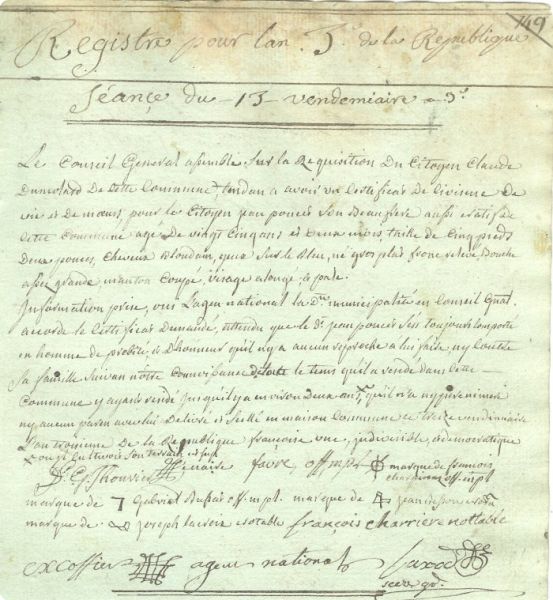 149
Registre pour lan 3.e de la Republique
Séançe du 13 vendemiaire a 3.e
Le Conseil General assemblé sur la Requisition Du Citoyen Claude
Dumolard De Cette Commune, tendan a avoir un Certificat de Civisme De
vie et De mœurs, pour le Citoyen jean poncet Son Beaufrere aussi natif de
Cette Commune age De vingt Cinq ans et Deux mois, taille de Cinq pieds
Deux pouces, Cheveux Blondain, yeux Sur le Bleu, né gros plat fronc relevé, Bouche
assez grande manton Coupé, visage alongé,
Information prise, oui L'agen national la D.te municipalité en Conseil Gnal.
accorde le Certificat Demandé, attendu que le D.t jean poncet s'est toujours Comporté
en homme de probité, et D'honneur qu'il n'y a aucun reproche a lui faire, ny Contre
Sa famille Suivan nôtre Connoisance de toute le tems quil a resté dans Cette
Commune y ayant resté jusqu'il y a environ Deux ans, qu'il n'a ny
ny aucun paren avec lui Delivré et Scellé en maison Commune Ce treize vendimiaire
L'an troisieme De la Republique françoise une, indivisible, et democratique
J. G. Thouvier maire favre off mpl marque de francois
off. mpt
marque de Gabriel off. mpt. marque de jean
marque de joseph lacroix notable françois charriere nottable
excoffier agent national saxod
secre gr.